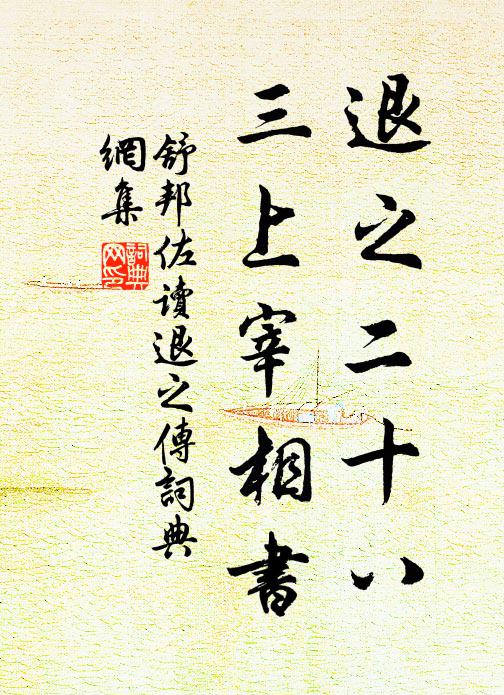 退之二十八
三上宰相書
舒邦佐讀退之傳詞典
網集
詞典
网印